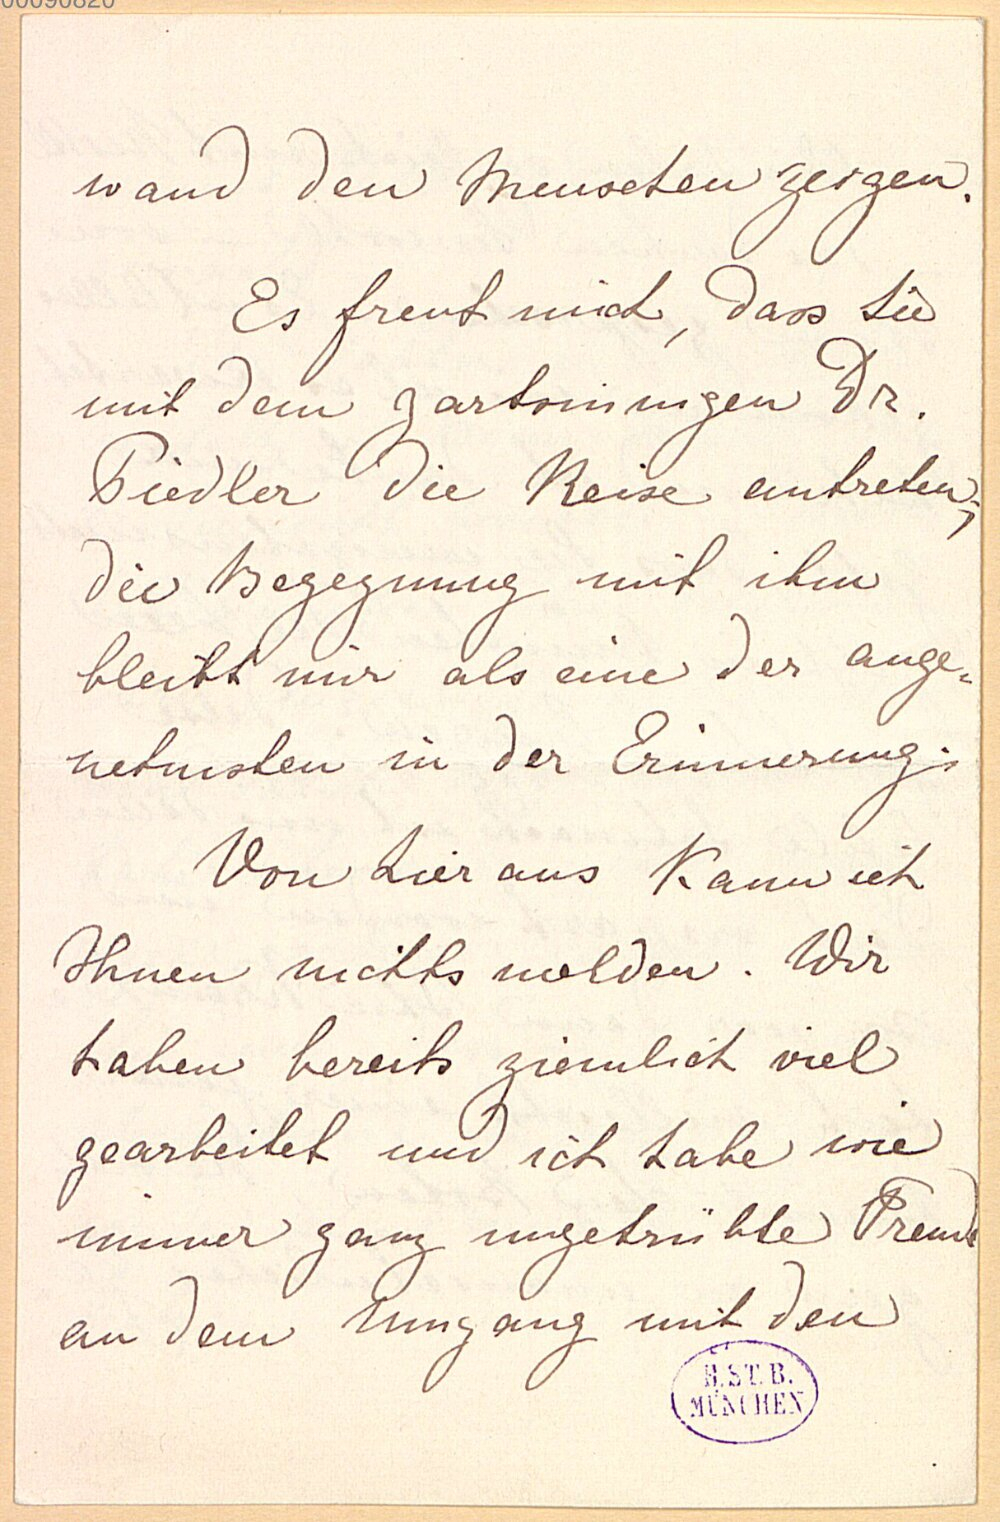 00090820
wand den Menschen zeigen.
Es freut mich, dass Sie
mit dem zartsinnigen Dr.
Fiedler die Reise antreten;
die Begegnung mit ihm
bleibt mir als eine der ange-
nehmsten in der Erinnerung.
Von hier aus kann ich
Ihnen nichts melden. Wir
haben bereits ziemlich viel
gearbeitet und ich habe wie
immer ganz ungetrübte Freude
an dem Umgang mit den
B.ST.B.
MÜNCHEN